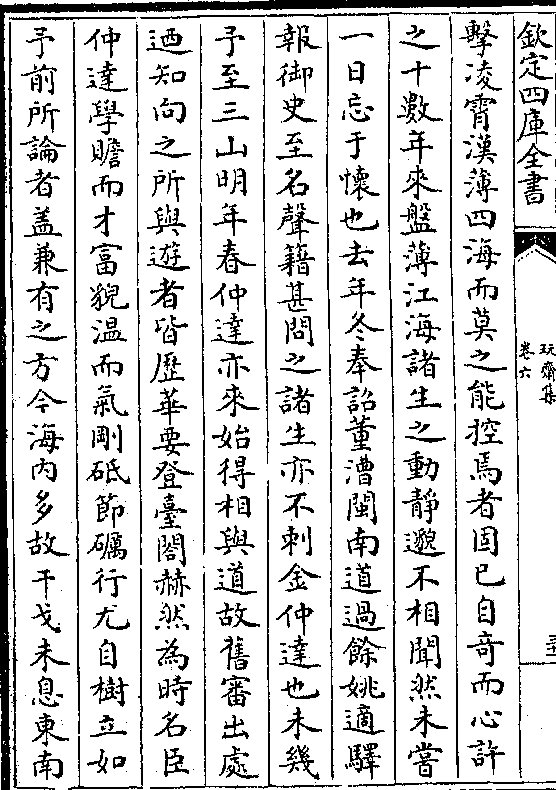 欽定四庫全書
玩齋集
卷六
擊凌霄漢薄四海而莫之能控焉者固已自竒而心許
之十數年來盤薄江海諸生之動靜邈不相聞然未嘗
一日忘于懷也去年冬奉詔董漕閩南道過餘姚適驛
報御史至名聲籍甚問之諸生亦不刺金仲達也未幾
予至三山明年春仲達亦來始得相與道故舊審出處
迺知向之所與遊者皆歷華要登臺閣赫然為時名臣
仲達學贍而才富貌温而氣剛砥節礪行尤自樹立如
予前所論者盖兼有之方今海内多故干戈未息東南